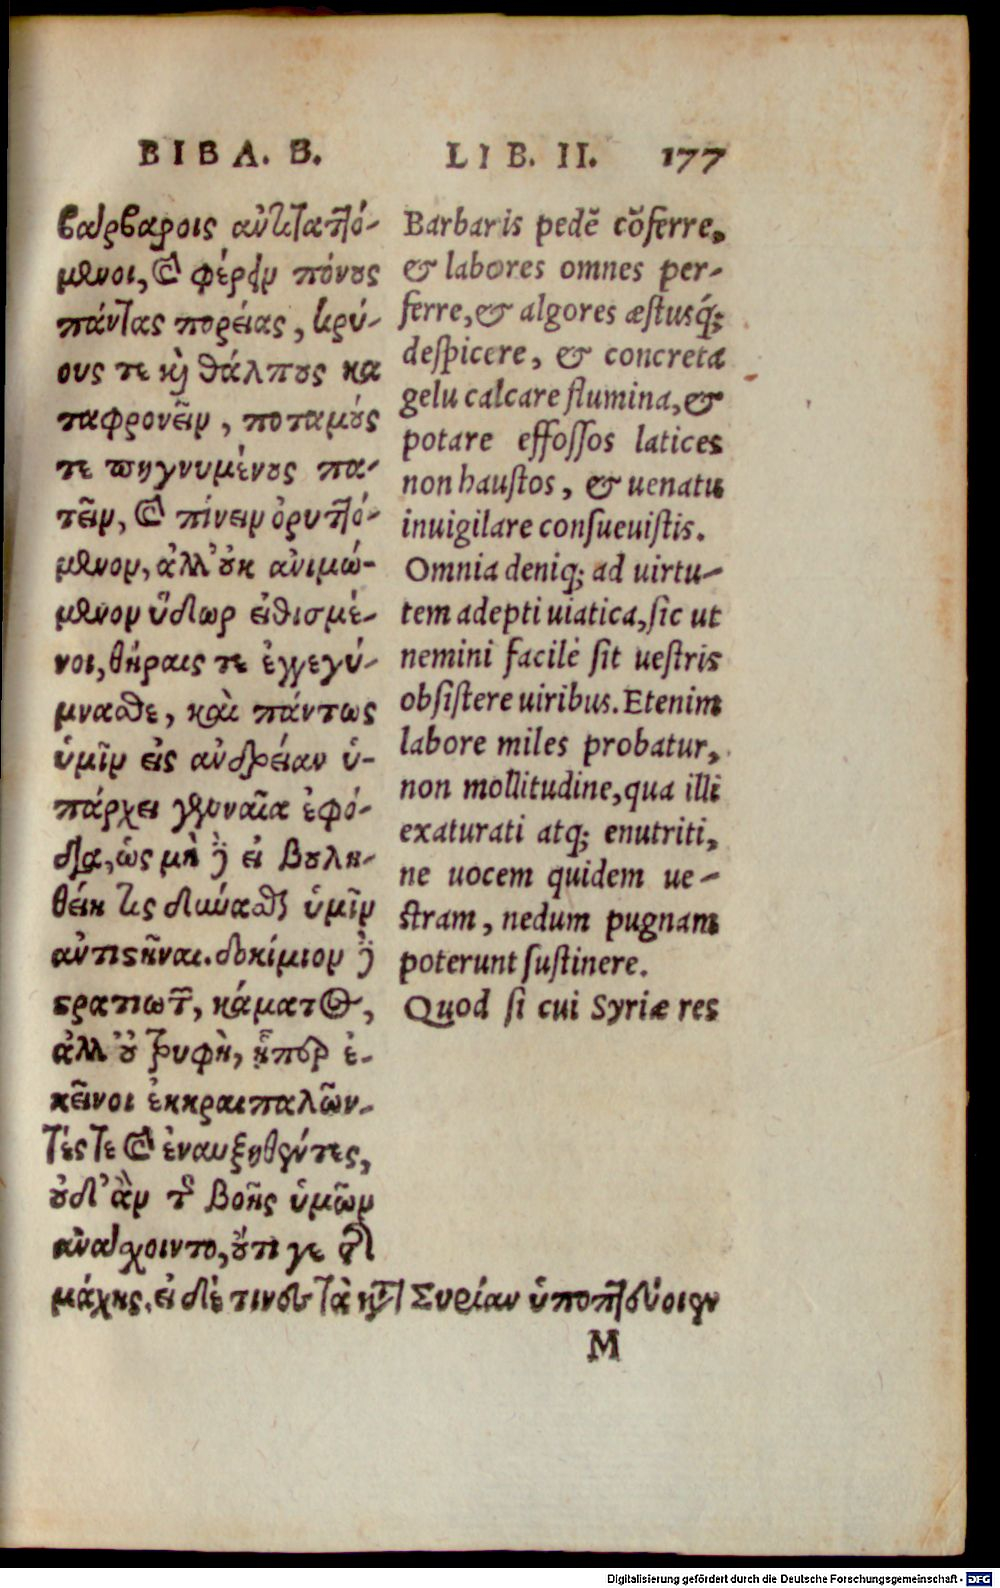 ΒΙΒΛ. Β.
LIB. II. 177
βαρβάροις ἀντιταττό-
μενοι, καὶ φέρειν πόνους
πάντας πορείας, κρύ-
ους τε καὶ θάλπους κα
ταφρονεῖν, ποταμούς
τε πηγνυμένους πα-
τεῖν, καὶ πίνειν ὀρυττό-
μενον, ἀλλ' οὐκ ἀνιμώ-
μενον ὕδωρ εἰθισμέ-
νοι, θήραις τε ἐγγεγύ-
μνασθε, καὶ πάντως
ὑμῖν εἰς ἀνδρείαν ὑ-
πάρχει γενναῖα ἐφό-
δια, ὡς μὴ δ' εἰ βουλη-
θείη τις δύνασθαι ὑμῖν
ἀντιστῆναι. δοκίμιον δὲ
στρατιωτῶν, κάματος,
ἀλλ' οὐ τρυφὴ, ἧπερ ἐ-
κεῖνοι ἐκκραιπαλῶν-
τές τε καὶ ἐναυξηθέντες,
οὐδ' ἂν τῆς βοῆς ὑμῶν
ἀνάσχοιντο, οὔτι γε τῆς
μάχης. εἰ δέ τινας τὰ κατὰ Συρίαν ὑποπτεύοιεν
Barbaris pedē cōferre,
& labores omnes per-
ferre, & algores æstusq́;
despicere, & concreta
gelu calcare flumina, &
potare effossos latices
non haustos, & uenatu
inuigilare consueuistis.
Omnia deniq; ad uirtu-
tem adepti uiatica, sic ut
nemini facilè sit uestris
obsistere uiribus. Etenim
labore miles probatur,
non mollitudine, qua illi
exaturati atq; enutriti,
ne uocem quidem ue-
stram, nedum pugnam
poterunt sustinere.
Quod si cui Syriæ res
M
Digitalisierung gefördert durch die Deutsche Forschungsgemeinschaft - DFG